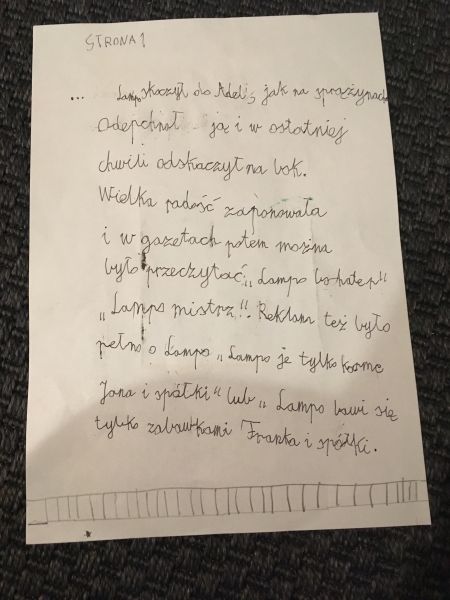 STRONA 1
... Lampo skoczył do Adeli, jak na sprężynach
Odepchnoł ją i w ostatniej
chwili odskaczył na bok.
Wielka radość zaponowała
i w gazetach potem można
było przeczytać „Lampo bohater"
„Lampo mistrz". Reklam też było
pełno o Lampo „Lampo je tylko karme
Jona i spółki" lub „Lampo bawi się
tylko zabawkami Franka i spółki.